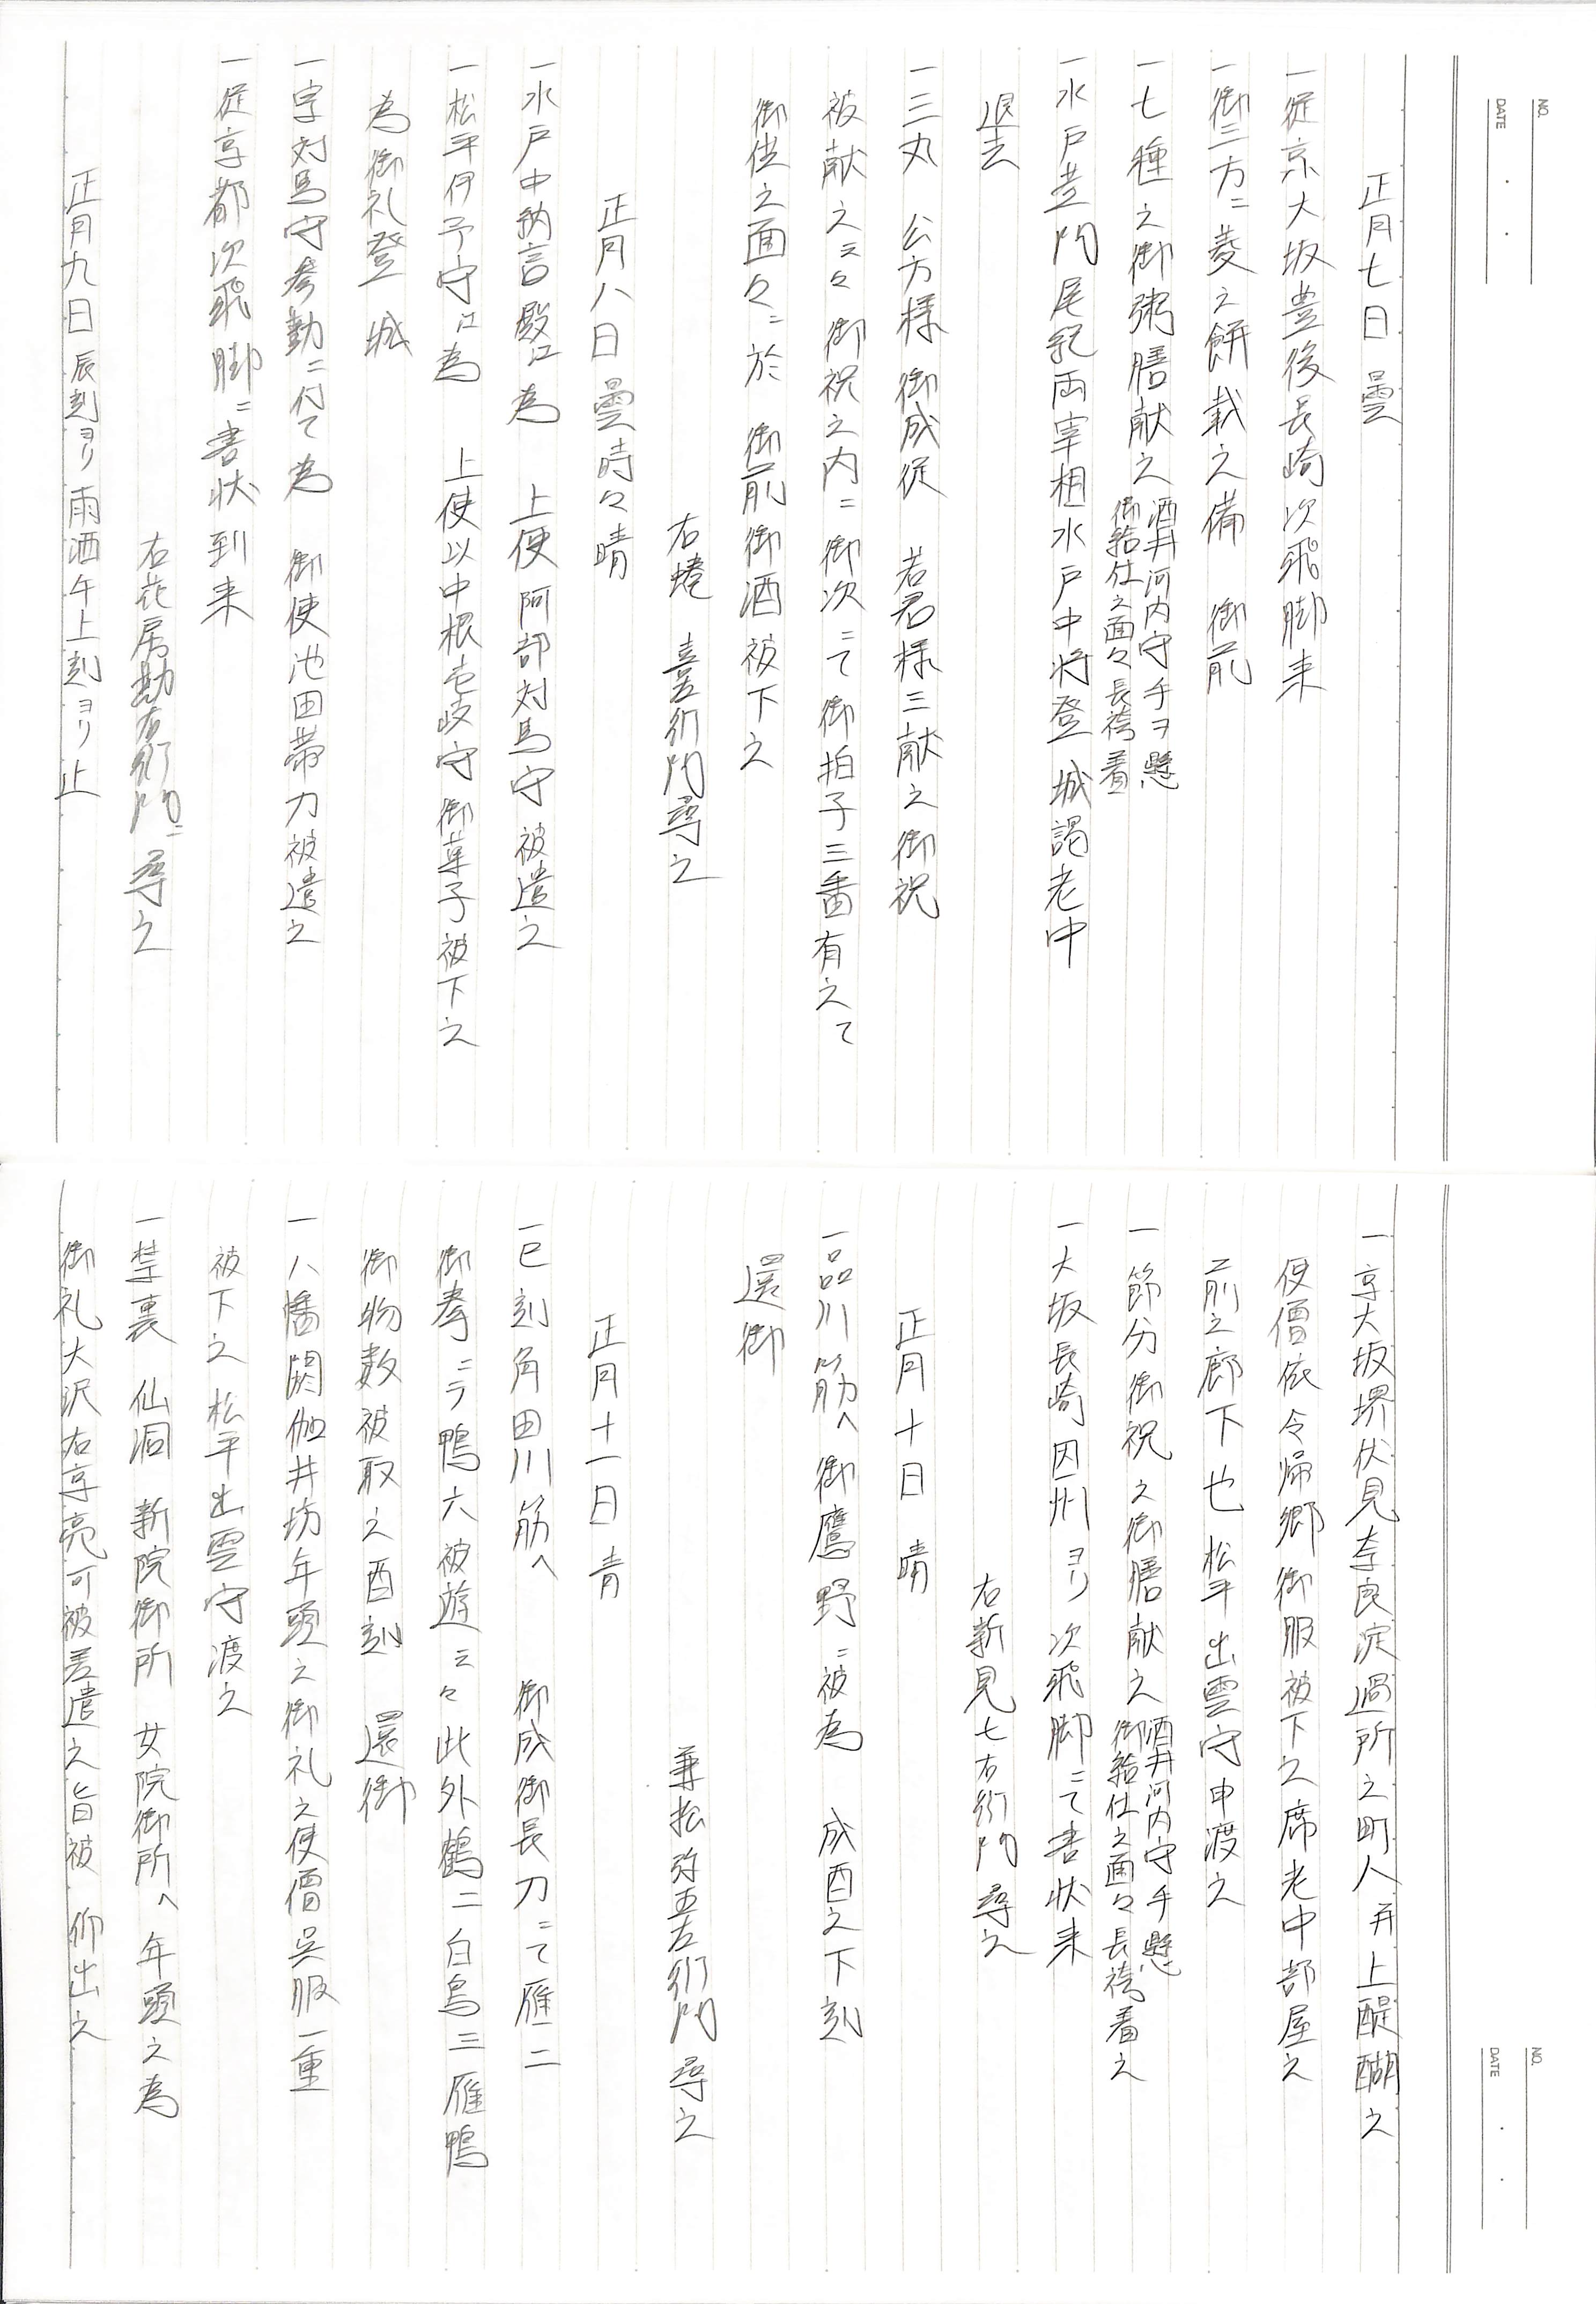 NO.
DATE
正月七日 曇
一従京大坂豊後長崎次飛脚来
一御三方ニ菱之餅載之備 御前
一七種之御粥膳献之 酒井河内守手ヲ懸 御給仕之面々長袴着
一水戸黄門尾紀両宰相水戸中将登 城謁老中
退去
一三丸 公方様 御成従 若君様三献之御祝
被献之云々御祝之内ニ御次ニて御拍子三番有之て
御坐之面々ニ於 御前御酒被下之
右蜷 喜左衛門尋之
正月八日 曇時々晴
一水戸中納言殿江為 上使 阿部対馬守被遣之
一松平伊予守江為 上使以中根壱岐守御菓子被下之
為御礼登 城
一宗対馬守参勤ニ付て為 御使池田帯刀被遣之
一従京都次飛脚ニ書状到来
右花房勘右衛門ニ尋之
正月九日 辰刻ヨリ雨洒午上刻ヨリ止
NO.
DATE
一京大坂堺伏見奈良淀過所之町人并上醍醐之
使僧依令帰郷御服被下之席老中部屋之
前之廊下也松平出雲守申渡之
一節分御祝之御膳献之 酒井河内守手懸 御給仕之面々長袴着之
一大坂長崎因州ヨリ次飛脚ニて書状来
右新見七右衛門尋之
正月十日 晴
一品川筋へ御鷹野ニ被為 成酉之下刻
還御
兼松弥五左衛門尋之
正月十一日 青
一巳刻角田川筋へ 御成御長刀ニて雁二
御拳ニテ鴨六被遊云々此外鶴二白鳥三雁鴨
御物数被取之酉刻 還御
一八幡閼伽井坊年頭之御礼之使僧呉服一重
被下之 松平出雲守渡之
一禁裏 仙洞 新院御所 女院御所へ年頭之為
御礼大沢右京亮可被差遣之旨被 仰出之